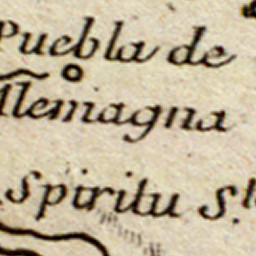 Puebla de
Alemagna
Spiritu S.t